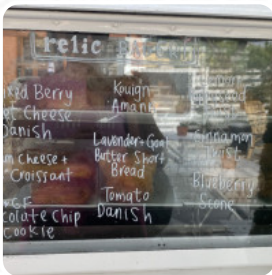 relic
xed Berry
Cheese
Danish
Cheese +
Croissant
Chip
Cookie
Kouign
Amann
Lavender + Goat
Butter Short
Bread
Tomato
Danish
Cinnamon
Twist
Blueberry
Scone